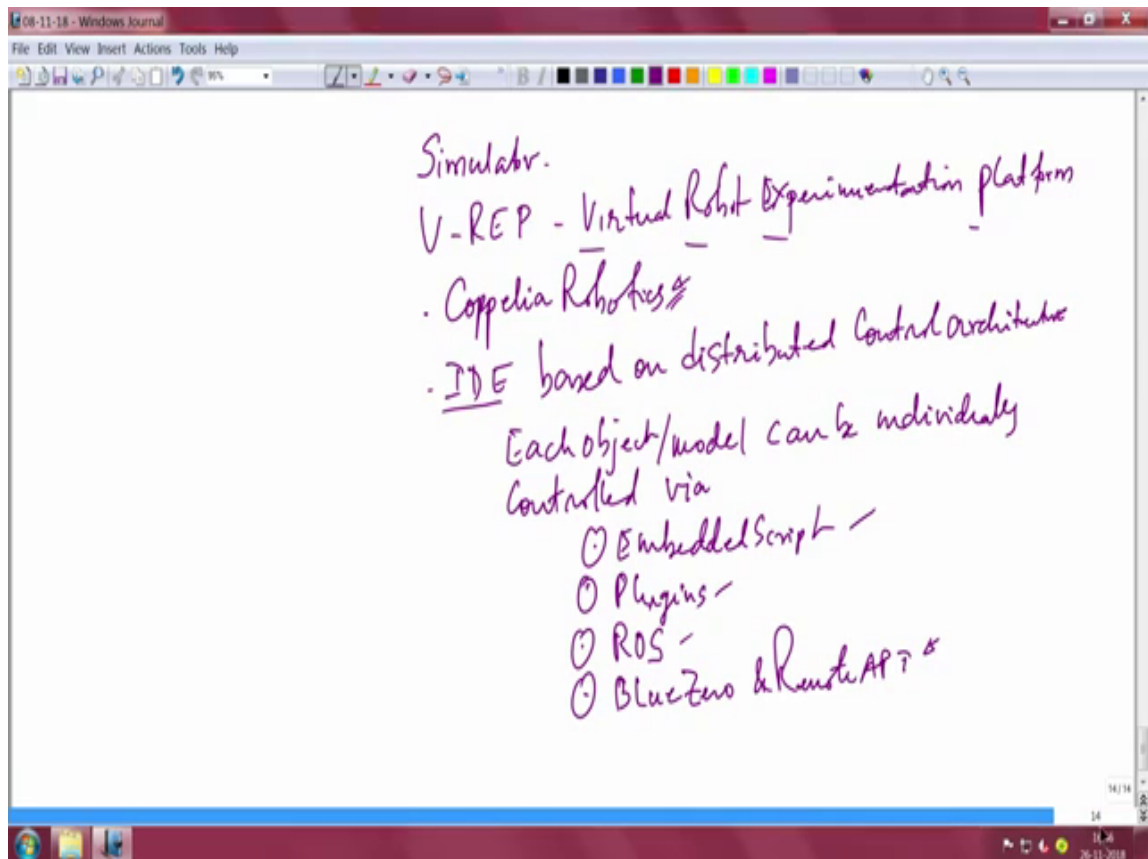 08-11-18 - Windows Journal
File Edit View Insert Actions Tools Help
Simulator.
V-REP - Virtual Robot Experimentation platform
. Coppelia Robotics
. IDE based on distributed Control architecture
Each object/model can be individually
Controlled via
Embedded Script
Plugins
ROS
BlueZero & Remote API
14/14
14
26-11-2018